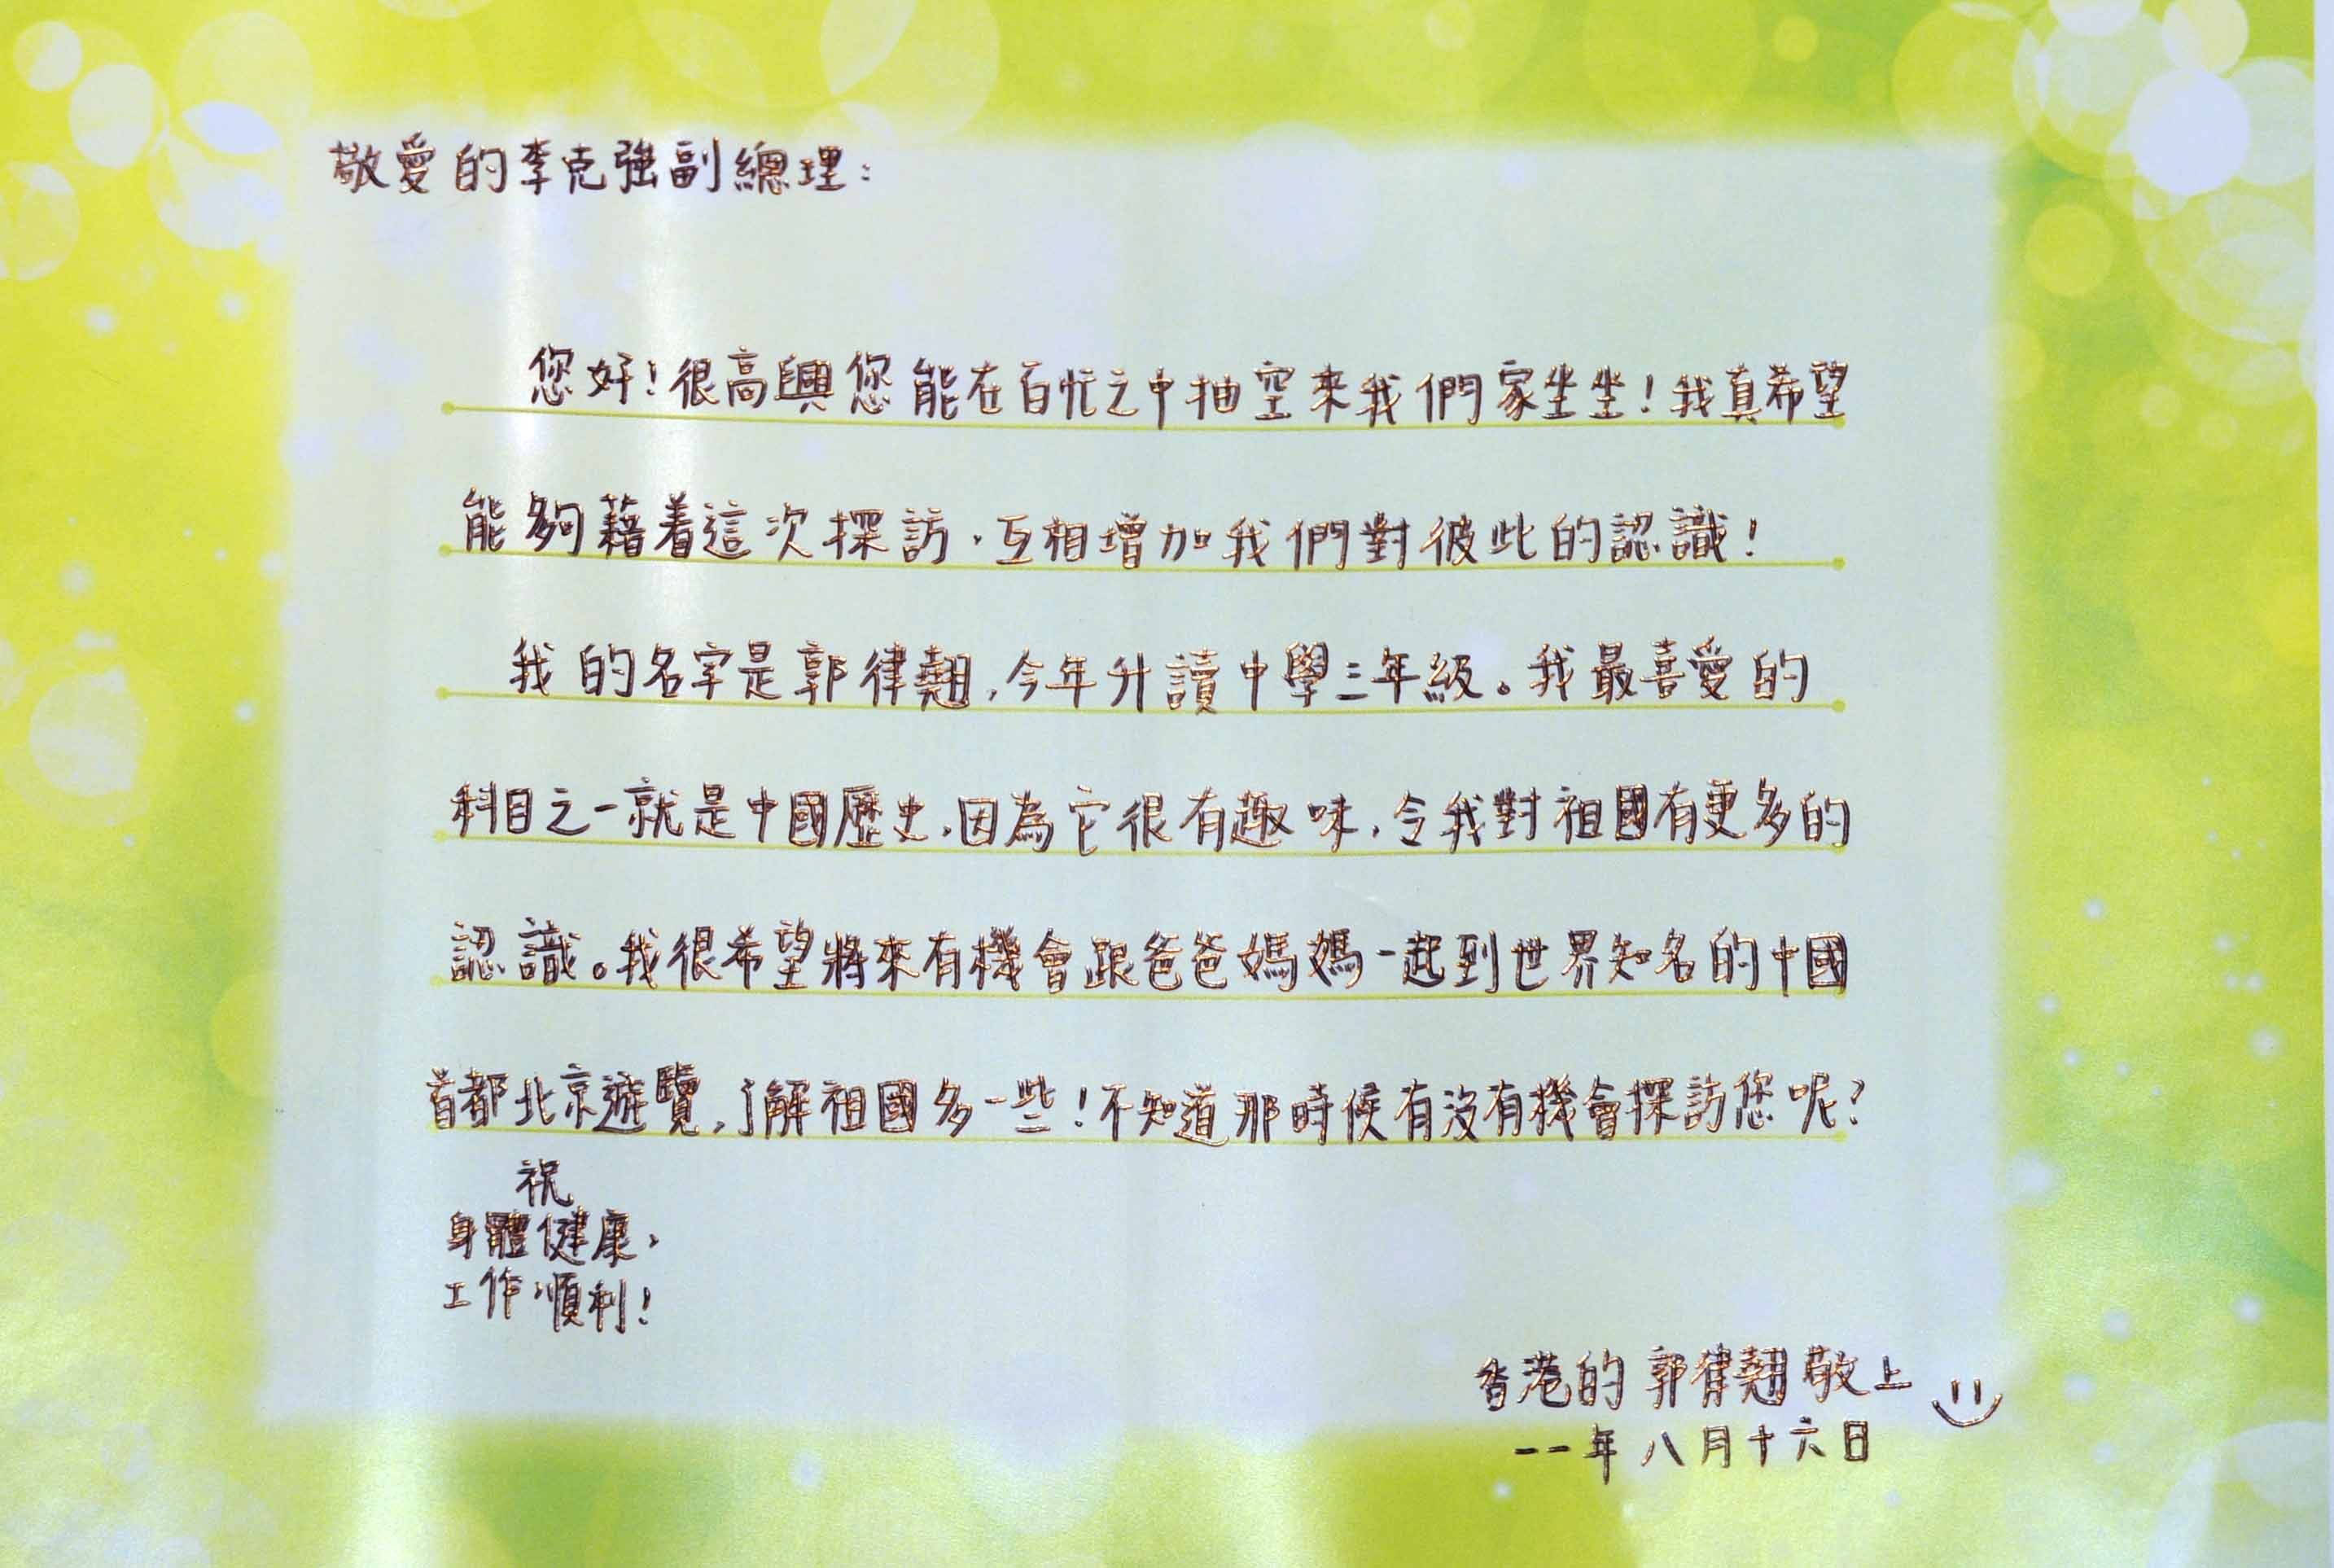 敬愛的李克強副總理：
您好！很高興您能在百忙之中抽空來我們家坐坐！我真希望
能夠藉着這次探訪，互相增加我們對彼此的認識！
我的名字是郭律翹，今年升讀中學三年級。我最喜愛的
科目之一就是中國歷史，因為它很有趣味，令我對祖國有更多的
認識。我很希望將來有機會跟爸爸媽媽一起到世界知名的中國
首都北京遊覽，了解祖國多一些！不知道那時候有沒有機會探訪您呢？
祝
身體健康，
工作順利！
香港的郭律翹敬上
一一年八月十六日